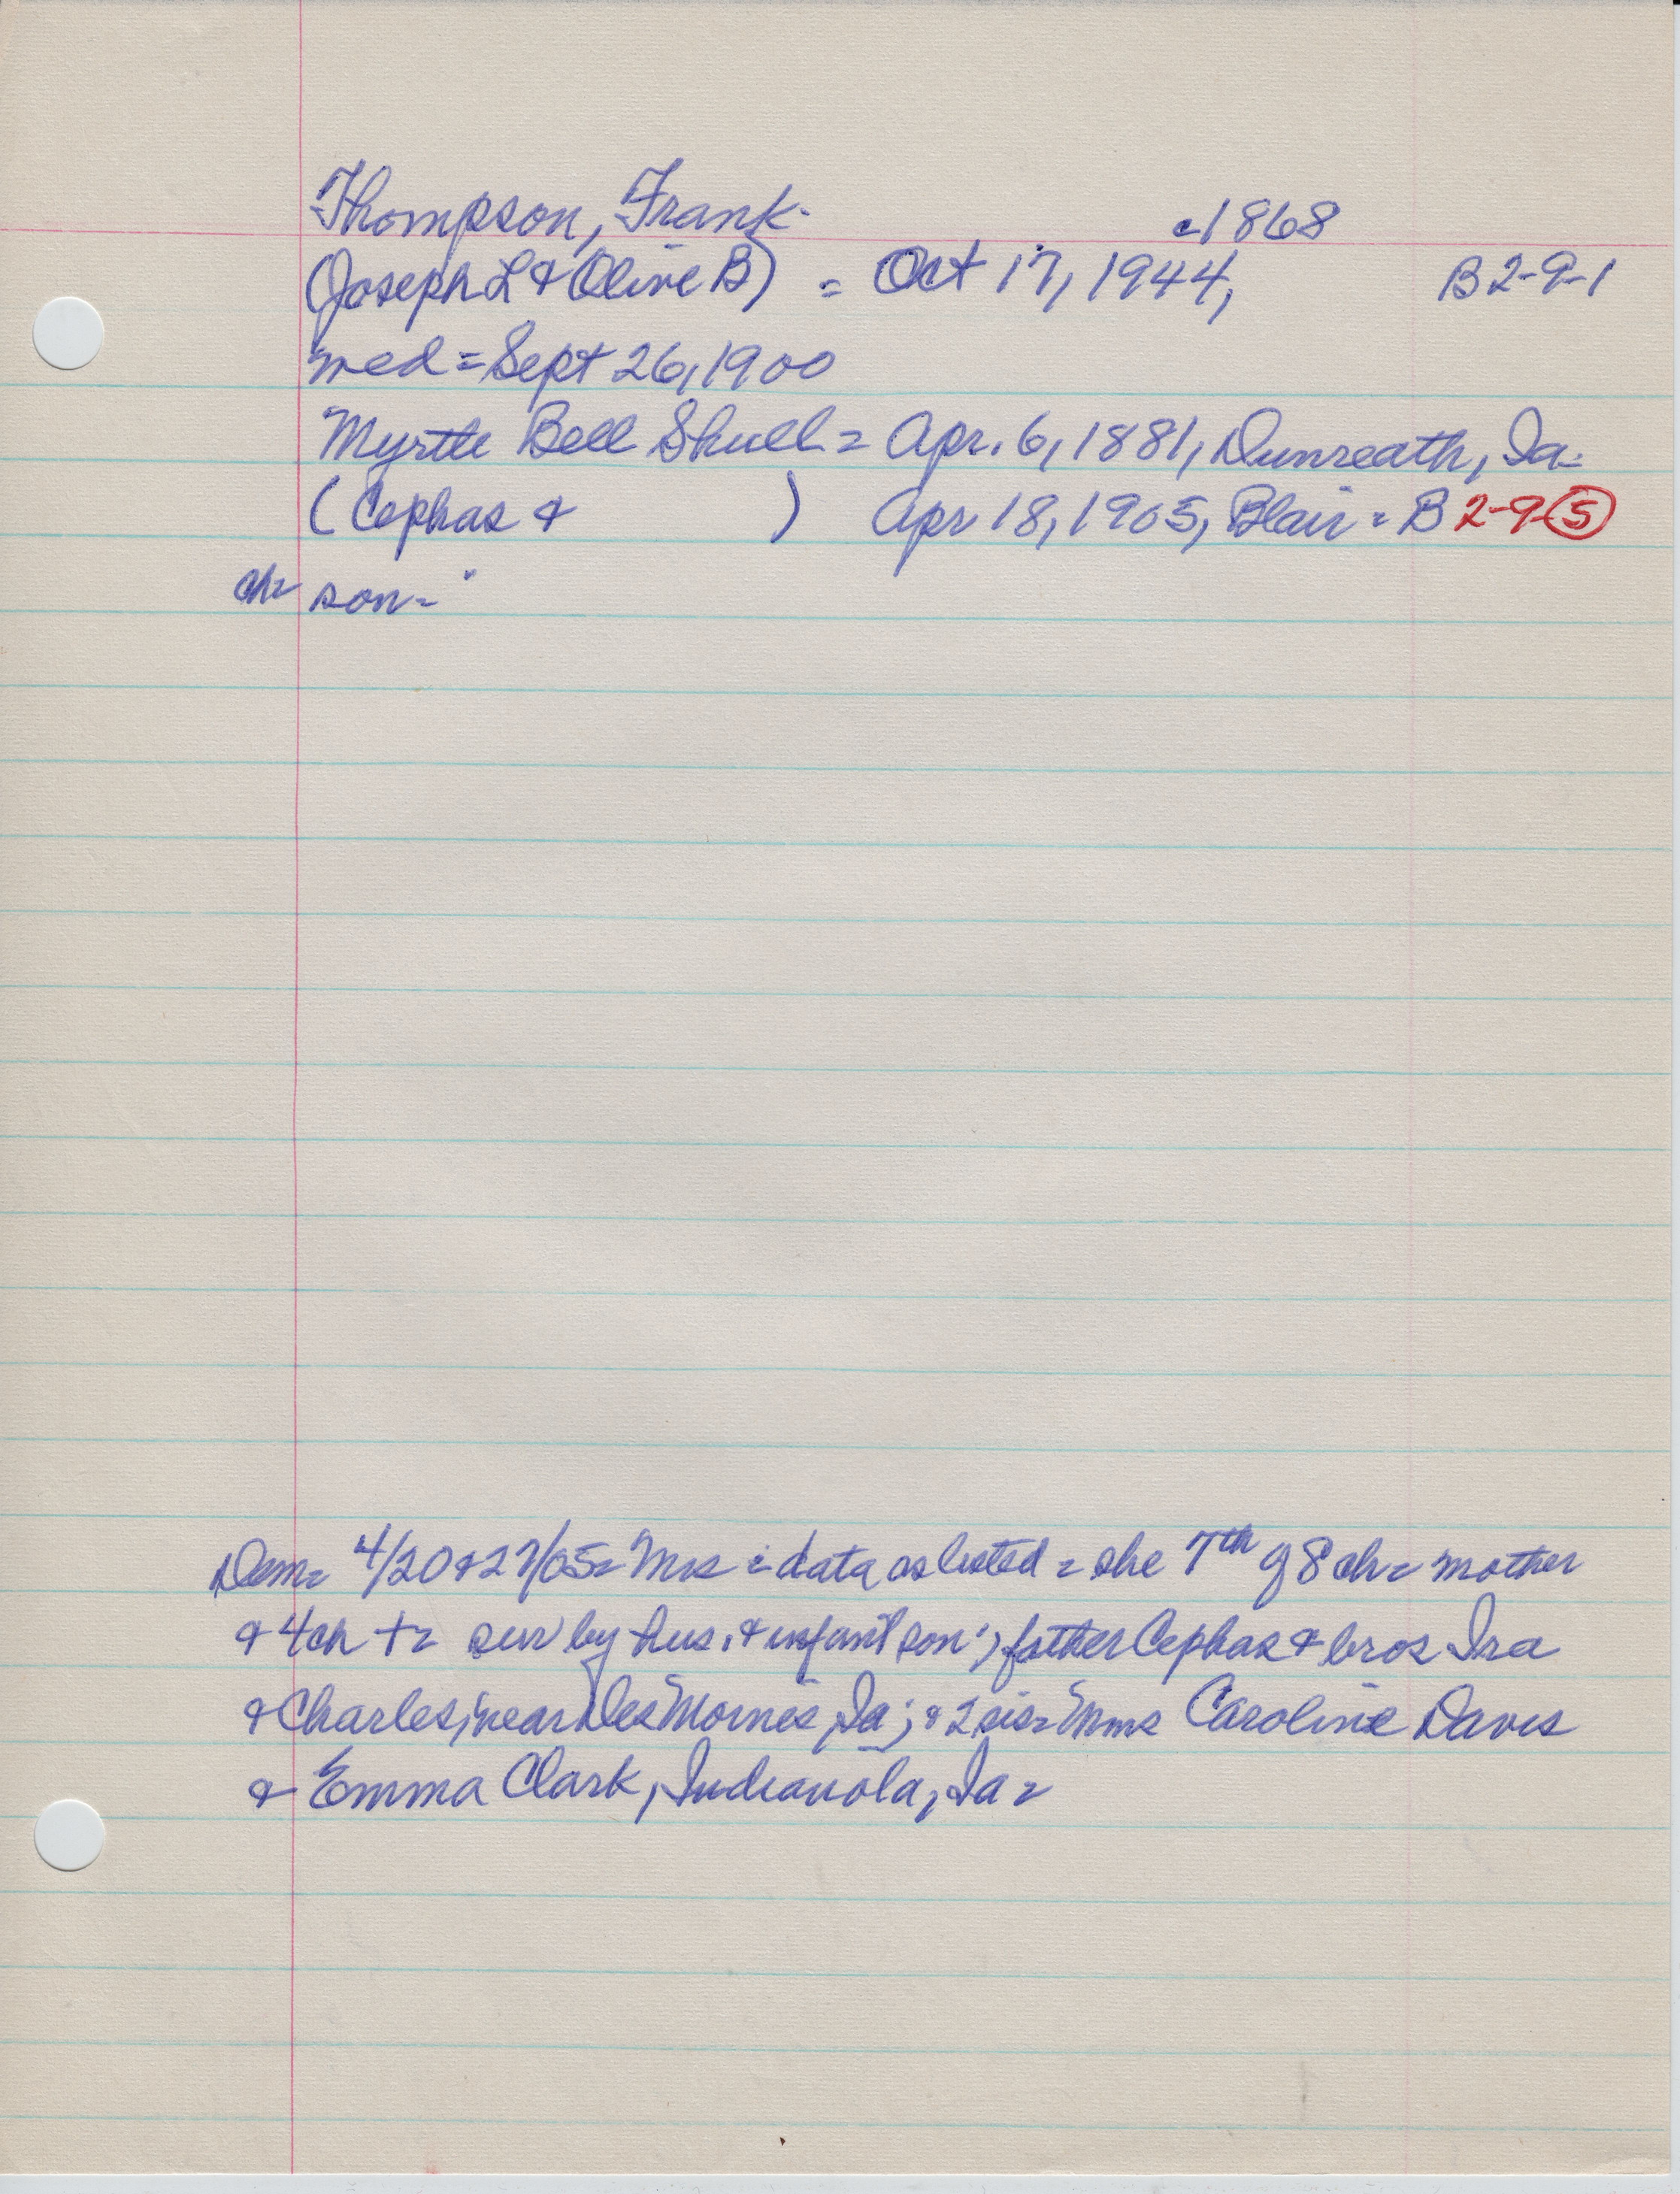 Thompson, Frank- c1868
(Joseph L & Olive B) = Oct 17, 1944, B 2-9-1
med = Sept 26, 1900
Myrtle Bell Shull = Apr. 6, 1881, Dunreath, Ia-
(Cephas & ) Apr 18, 1905, Blair = B 2-9-5
ch= son-
Dem= 4/20 & 27/05= Mrs = data as listed = she 7th of 8 ch= mother
& 4 ch += sur by hus. & infant son; father Cephas & bros Ira
& Charles, near Des Moines, Ia; & 2 sis= Mms Caroline Davis
& Emma Clark, Indianola, Ia=